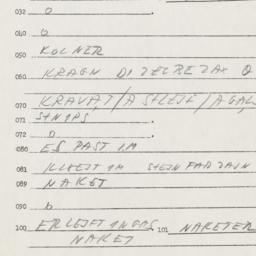 032 0
040 0
050 KOLNER
060 KRAGN DI ZELBE ZAX 0
070 KRAVAT / A SHLEJF / A GAL
071 SHNIPS
072 0
080 ES PAST IM
081 KLEJT IM SHEJN FAR ZAJN
089 NAKET
090 b
100 ER LEJFT INGAS 101 NAKETER
NAKET